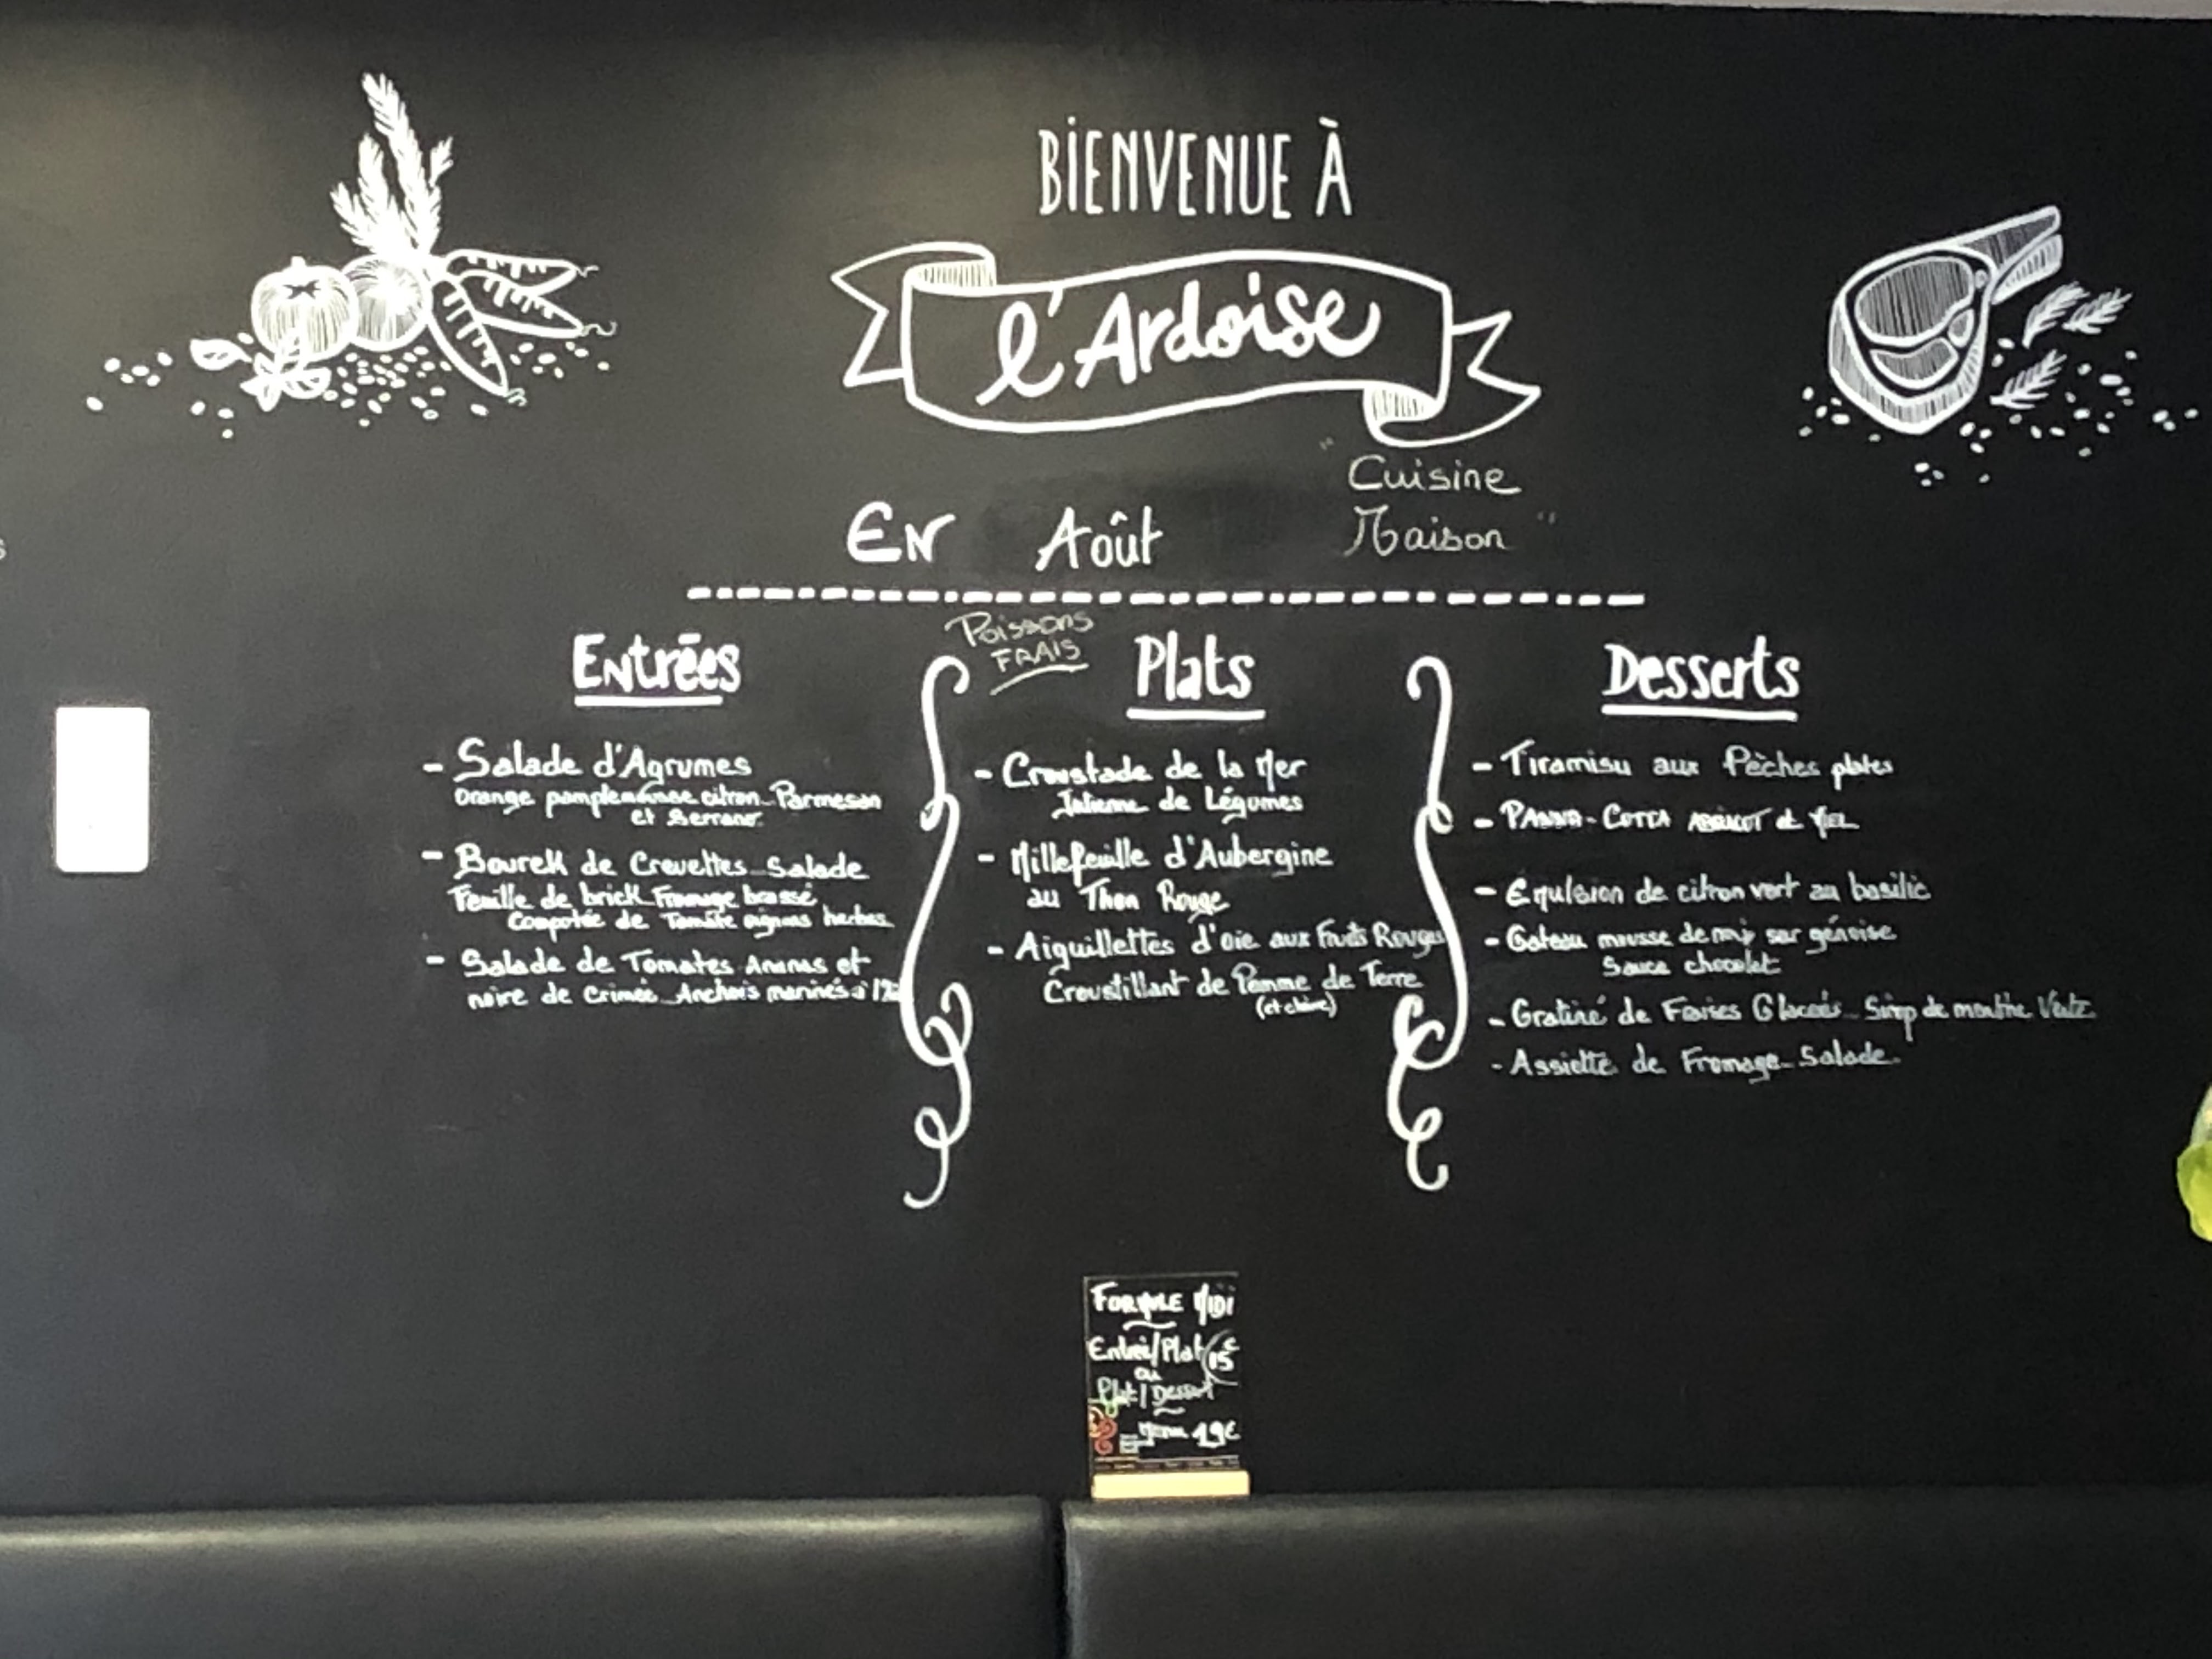 BIENVENUE À
l'Ardoise
"Cuisine
Maison"
EN Août
Poissons
FRAIS
Entrées
- Salade d'Agrumes
Orange pamplemousse citron Parmesan
et Serrano
- Bourek de Crevettes Salade
Feuille de brick Fromage brassé
Compotée de Tomate oignons herbes
- Salade de Tomates Ananas et
noire de Crimée Anchois marinés à l'
Plats
- Croustade de la Mer
Julienne de Légumes
- Millefeuille d'Aubergine
au Thon Rouge
- Aiguillettes d'oie aux Fruits Rouges
Croustillant de Pomme de Terre
(et chèvre)
Desserts
- Tiramisu aux Pèches plates
- PANNA-COTTA ABRICOT et MIEL
- Emulsion de citron vert au basilic
- Gateau mousse de sur génoise
Sauce chocolat
- Gratiné de Glacées Sirop de menthe Verte
- Assiette de Fromage Salade
FORMULE MIDI
Entrée/Plat 15€
ou
Plat/Dessert
Menu 19€